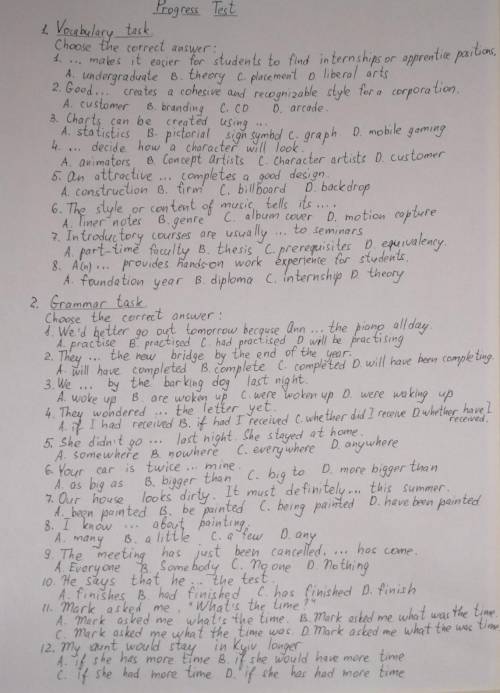 Progress Test
1. Vocabulary task
Choose the correct answer:
1. ... makes it easier for students to find internships or apprentice positions.
A. undergraduate B. theory C. placement D liberal arts
2. Good... creates a cohesive and recognizable style for a corporation.
A. customer B. branding C. CD D. arcade.
3. Charts can be created using ...
A. statistics B. pictorial sign symbol C. graph D. mobile gaming
4. ... decide how a character will look.
A. animators B Concept Artists C. Character artists D. customer
5. An attractive ... completes a good design.
A. construction B. firm C. billboard D. backdrop
6. The style or content of music tells its ....
A. liner notes B. genre C. album cover D. motion capture
7. Introductory courses are usually ... to seminars
A. part-time faculty B. thesis C. prerequisites D. equivalency.
8. A(n) ... provides hands-on work experience for students.
A. foundation year B. diploma C. internship D. theory
2. Grammar task
Choose the correct answer:
1. We'd better go out tomorrow because Ann ... the piano all day.
A. practise B practised C. had practised D will be practising
2. They ... the new bridge by the end of the year.
A. will have completed B. complete C. completed D. will have been completing.
3. We ... by the barking dog last night.
A. woke up B. are woken up C. were woken up D. were waking up
4. They wondered ... the letter yet.
A. if I had received B. if had I received C. whether did I receive D. whether have I
received.
5. She didn't go ... last night. She stayed at home.
A. somewhere B. nowhere C. everywhere D. anywhere
6. Your car is twice ... mine.
A. as big as B. bigger than C. big to D. more bigger than
7. Our house looks dirty. It must definitely ... this summer.
A. been painted B. be painted C. being painted D. have been painted
8. I know ... about painting.
A. many B. a little C. a few D. any
9. The meeting has just been cancelled, ... has come.
A. Everyone B. Somebody C. No one D. Nothing
10. He says that he ... the test.
A. finishes B. had finished C. has finished D. finish
11. Mark asked me, "What's the time?"
A. Mark asked me what's the time. B. Mark asked me what was the time.
C. Mark asked me what the time was. D. Mark asked me what the was time
12. My aunt would stay in Kyiv longer
A. if she has more time B. if she would have more time
C. if she had more time D. if she has had more time